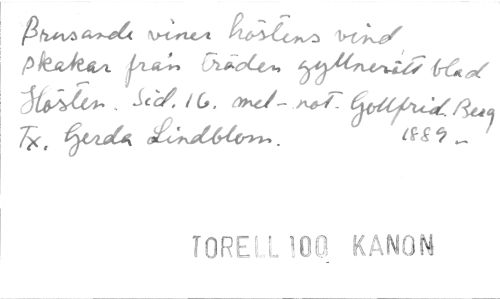 Brusande viner höstens vind
skakar från träden gyllnerött blad
Hösten. Sid. 16. mel-not. Gottfrid. Berg
Tx. Gerda Lindblom. 1889-
TORELL 100 KANON